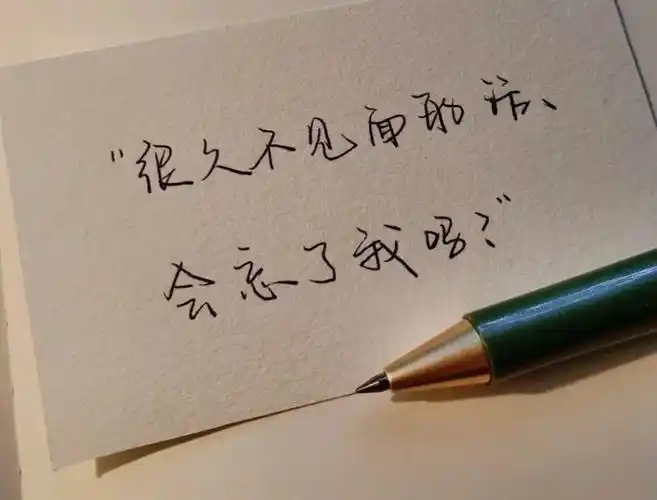 “很久不见面的话、
会忘了我吗？”